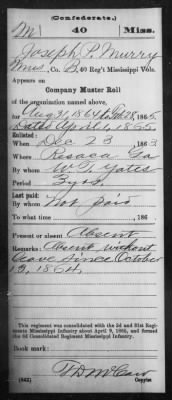 (Confederate.)
M 40 Miss.
Joseph P. Murry
Co. B, 40 Reg't Mississippi Vols.
Appears on
Company Muster Roll
of the organization named above,
for Aug 31, 1864 to Feb 28, 1865.
Dated April 1, 1865.
Enlisted:
When Dec 23, 1863
Where Resaca Ga
By whom W. T. Yates
Period 3 yrs.
Last paid:
By whom Not paid
To what time , 186 .
Present or absent Absent
Remarks: Absent without
leave since October
13, 1864.
This regiment was consolidated with the 3d and 31st Regi-
ments Mississippi Infantry about April 9, 1865, and formed
the 3d Consolidated Regiment Mississippi Infantry.
Book mark:
(642) Copyist.